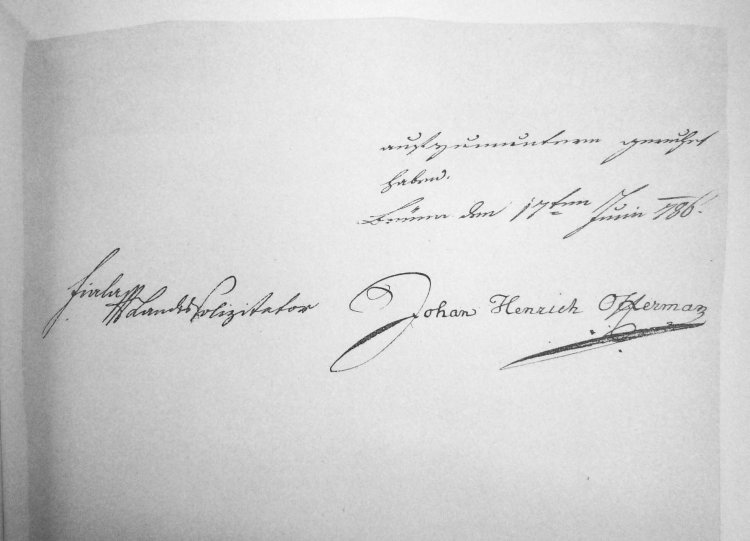 aufzumuntern geruhet
haben.
Brünn den 17ten Junii 786.
Fiala Landes Solizitator
Johan Henrich Offerman